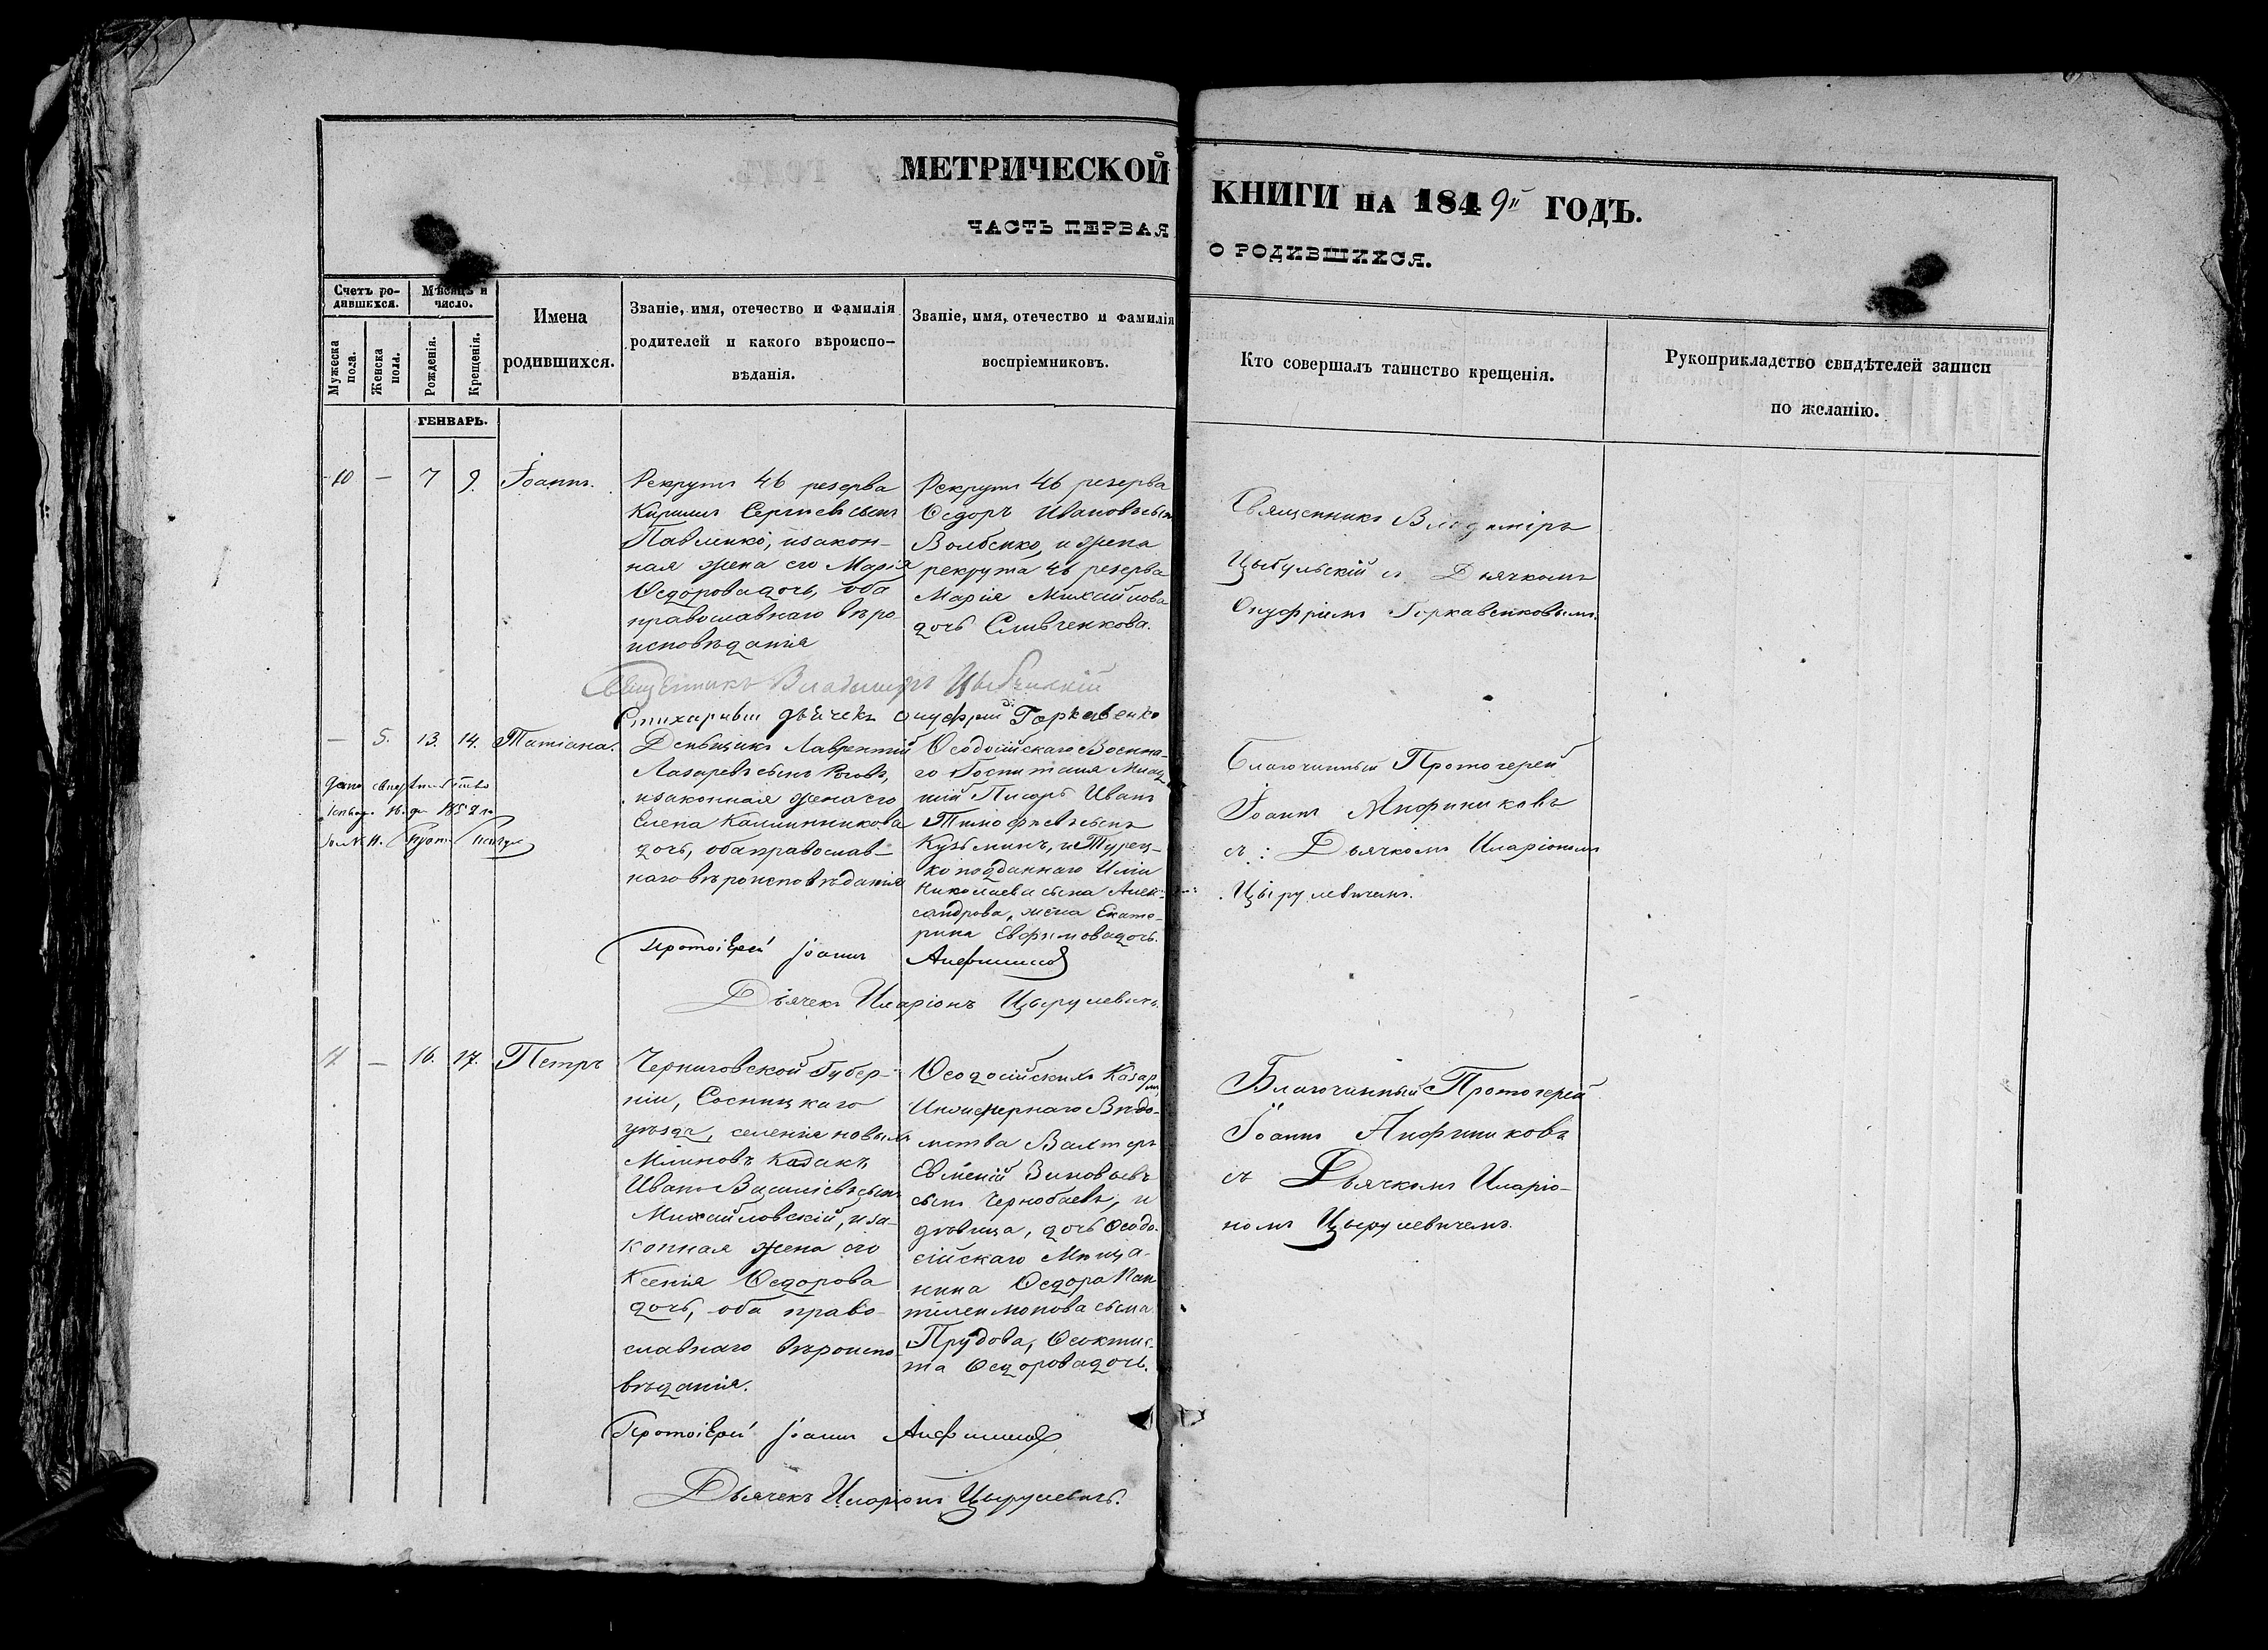 МЕТРИЧЕСКОЙ КНИГИ НА 1849й ГОДЪ.
ЧАСТЬ ПЕРВАЯ О РОДИВШИХСЯ.
Счетъ ро-
дившихся.
Мужеска пола.
Женска пола.
Мѣсяцъ и
число.
Рожденія.
Крещенія.
Имена
родившихся.
Званіе, имя, отечество и фамилія
родителей и какого вѣроиспо-
вѣданія.
Званіе, имя, отечество и фамилія
воспріемниковъ.
Кто совершалъ таинство крещенія.
Рукоприкладство свидѣтелей записи
по желанію.
ГЕНВАРЬ.
10 — 7 9. Іоаннъ.
Рекрутъ 46 резерва
Кирилъ Сергіевъ сынъ
Павленко, и закон-
ная жена его Марія
Ѳедорова дочь, оба
православнаго вѣро
исповѣданія
Рекрутъ 46 резерва
Ѳедоръ Ивановъ сынъ
и жена
рекрута 46 резерва
Марія Михайлова
дочь Сливченкова.
Священникъ Владиміръ
Цыбульскій съ Дьячкомъ
Онуфріемъ Горкавенковымъ.
Священникъ Владиміръ Цыбульскій
Стихарный дьячекъ Онуфрій Горкавенко
— 5. 13. 14. Татіана.
Деньщикъ Лаврентій
Лазаревъ сынъ
и законная жена его
Елена Калинникова
дочь, оба православ-
наго вѣроисповѣданія
Ѳеодосійскаго Военна-
го Госпиталя Млад
шій Писарь Иванъ
Тимофѣевъ сынъ
Кузьминъ, и Турец-
ко подданнаго Иліи
Николаева сына Алек-
сандрова, жена Екате-
рина Евфимова дочь.
Благочинный Протоіерей
Іоаннъ Анфиниковъ
съ: Дьячкомъ Иларіономъ
Цырулевичемъ.
Протоіерей Іоаннъ
Дьячекъ Иларіонъ Цырулевичъ.
11 — 16. 17. Петръ
Черниговской Губер-
ніи, Сосницкаго
уѣзда, селенія новыхъ
Млиновъ Казакъ
Иванъ Василіевъ сынъ
Михайловскій, и за-
конная жена его
Ксенія Ѳедорова
дочь, оба право-
славнаго вѣроиспо-
вѣданія.
Ѳеодосійскихъ Казармъ
Инженернаго Вѣдо-
мства Вахтеръ
Евмѣній Зиновьевъ
сынъ Чернобаевъ, и
дѣвица, дочь Ѳеодо-
сійскаго Мѣща-
нина Ѳедора Пан
тілеимонова сына
Прудова, Ѳеоктис-
та Ѳедорова дочь.
Благочинный Протоіерей
Іоаннъ Анфиниковъ
съ Дьячкомъ Иларіо-
номъ Цырулевичемъ.
Протоіерей Іоаннъ
Дьячекъ Иларіонъ Цырулевичъ.